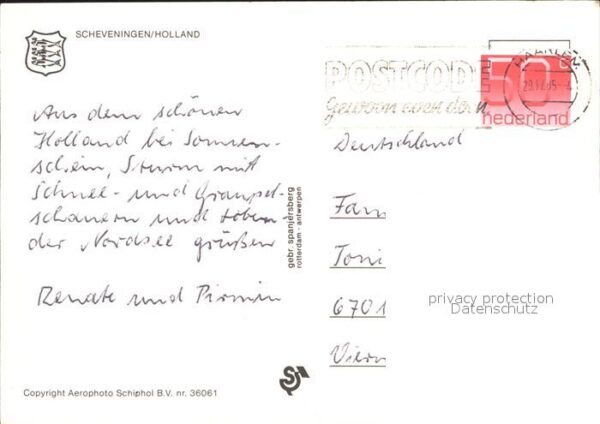 SCHEVENINGEN/HOLLAND
POSTCODE
Gewoon even doen
HAARLEM
50
nederland
Aus dem schönen
Holland bei Sonnen-
schein, Sturm mit
Schnee- und Graupel-
schauern und toben-
der Nordsee grüßen
Renate und Pirmin
Deutschland
Fam
Toni
6701
gebr. spanjersberg
rotterdam - antwerpen
privacy protection
Datenschutz
Copyright Aerophoto Schiphol B.V. nr. 36061